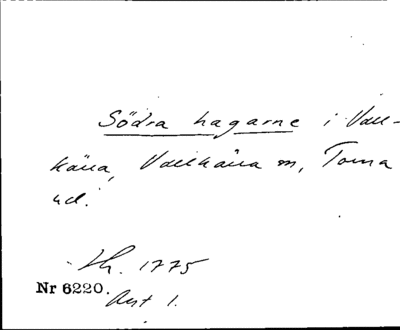 Södra hagarne i Vall-
källa, Vallkälla sn, Torna
hd.
Lh. 1775
Nr 6220.
Avst 1.